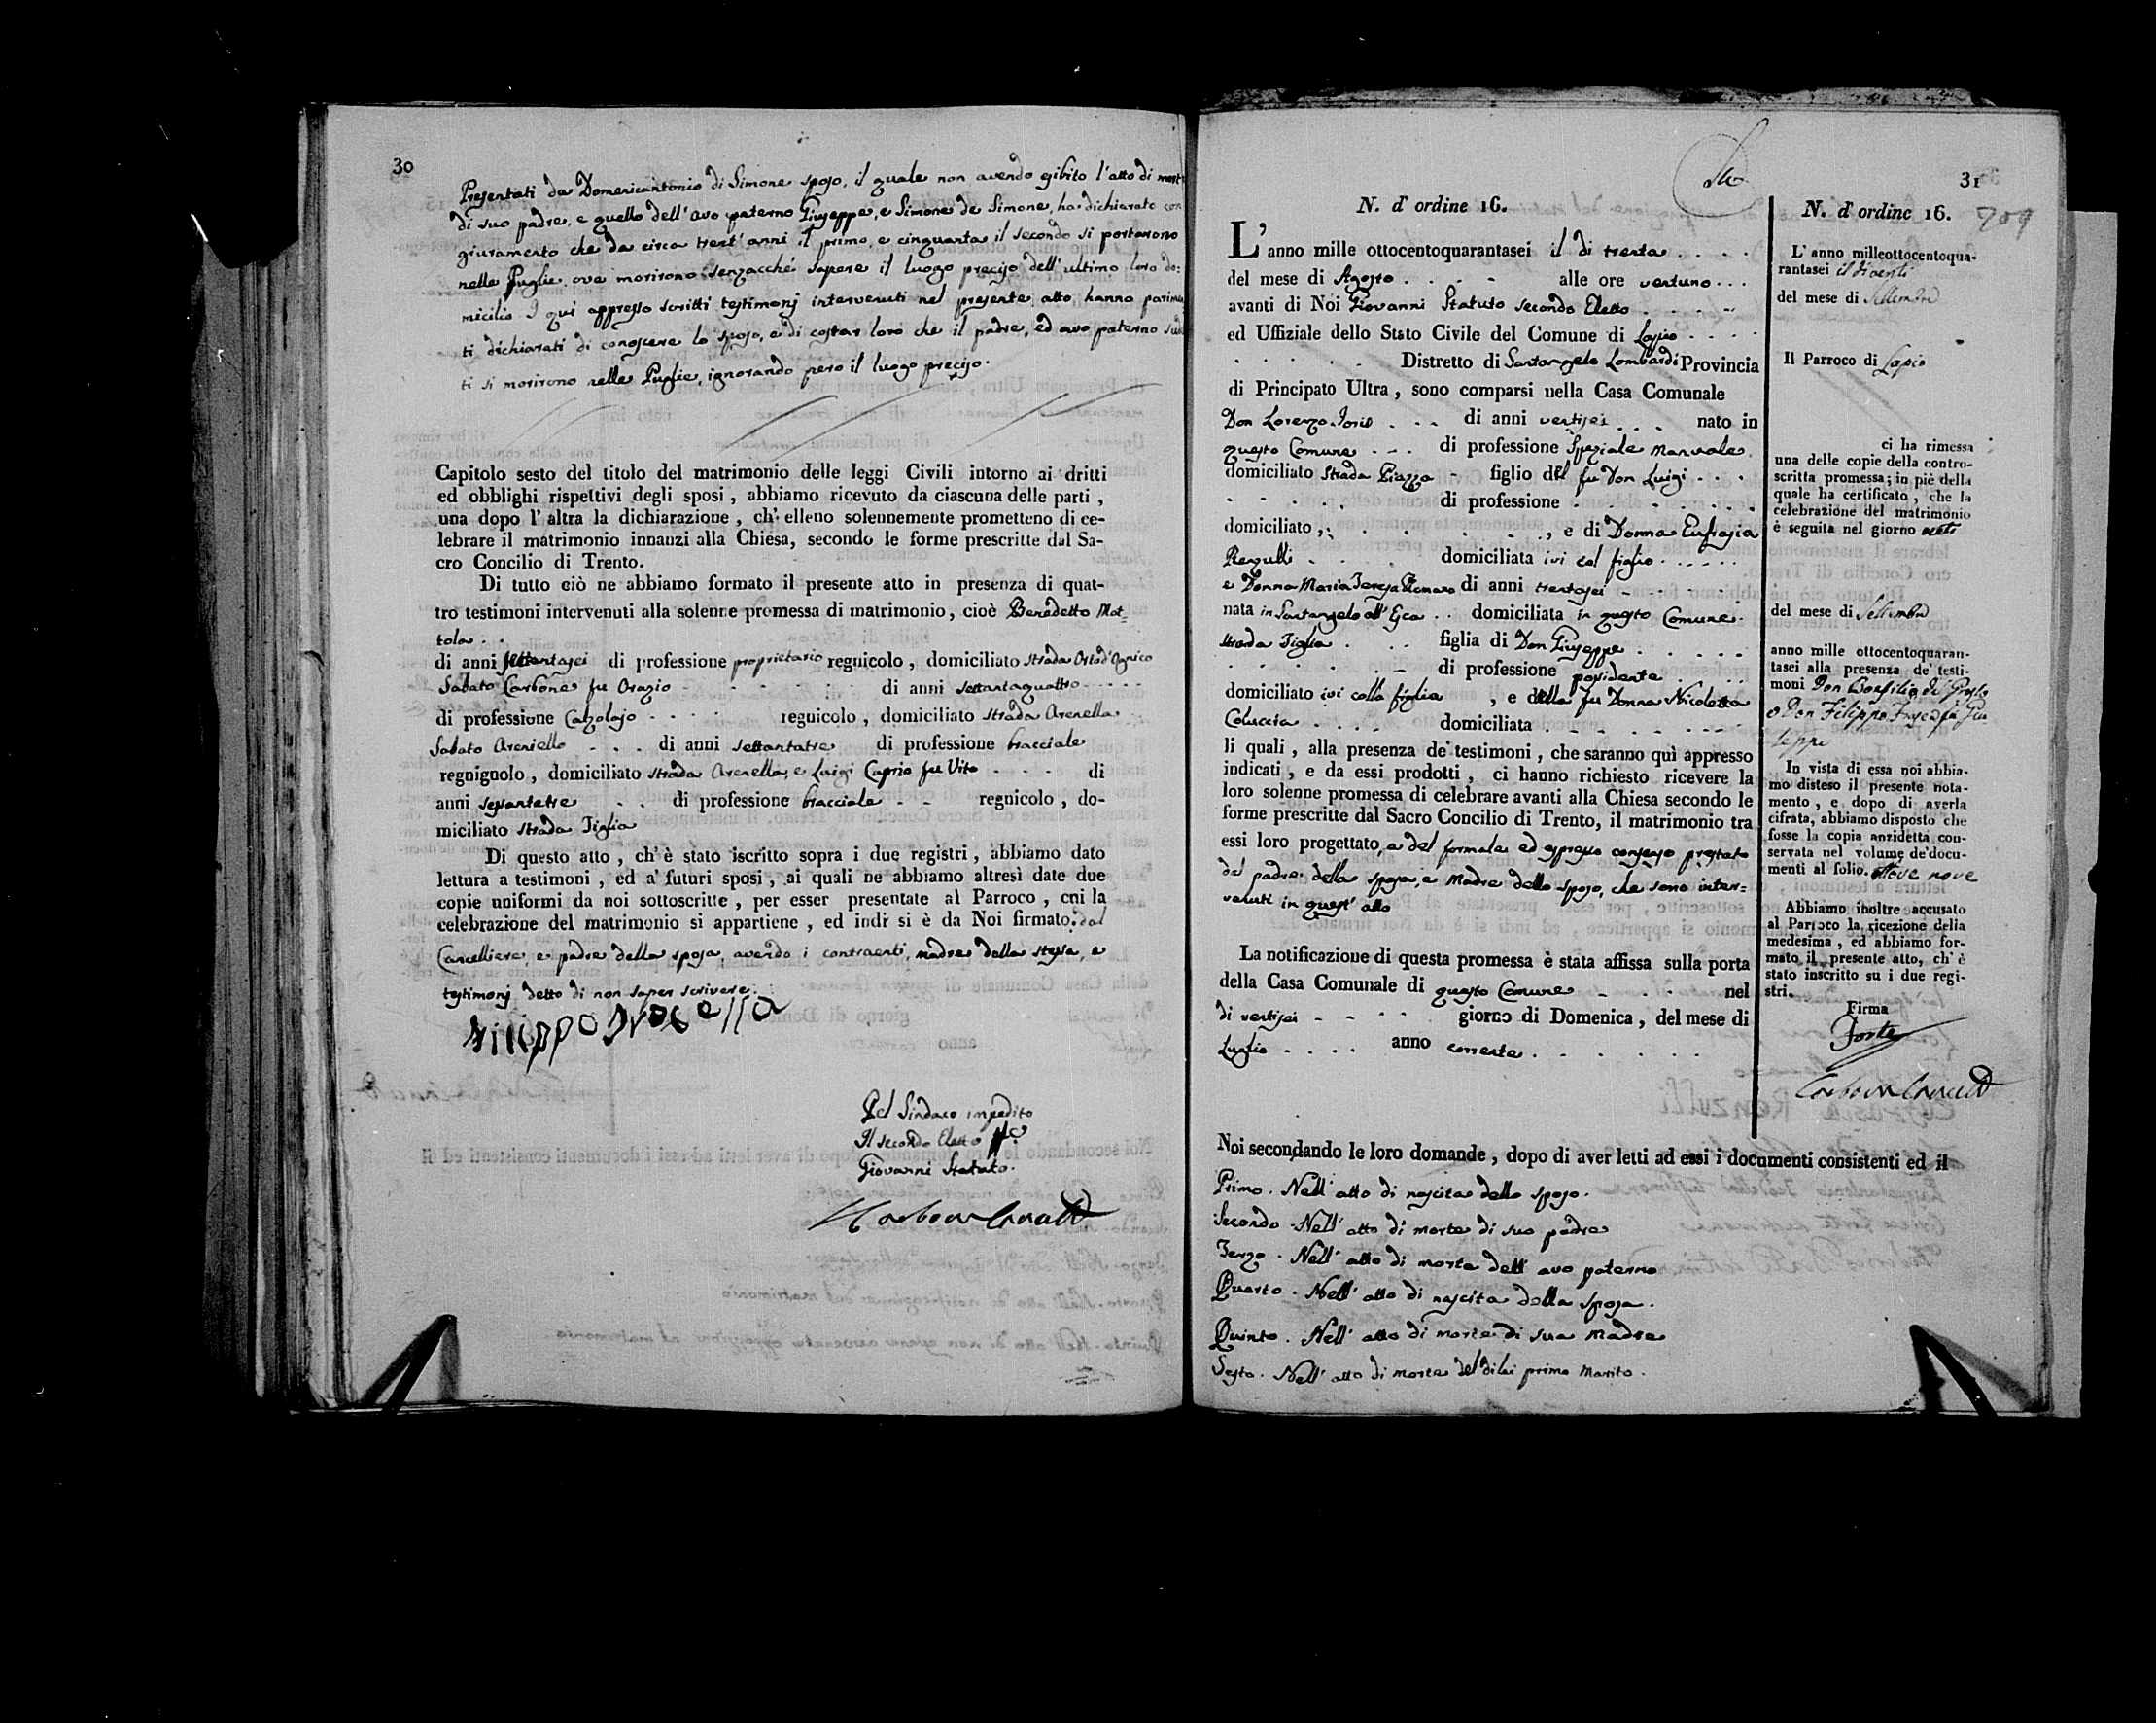 30
Presentati da Domenicantonio di Simone sposo, il quale non avendo esibito l'atto di
di suo padre, e quello dell'avo paterno Giuseppe, e Simone de Simone, ha dichiarato con
giuramento che da circa trent'anni il primo, e cinquanta il secondo si portarono
nelle Puglie ove morirono senzacché sapere il luogo preciso dell'ultimo loro do=
micilio I qui appresso scritti testimonj intervenuti nel presente atto, hanno
ti dichiarati di conoscere lo sposo, e di costar loro che il padre, ed avo paterno
ti si morirono nelle Puglie, ignorando però il luogo preciso.
Capitolo sesto del titolo del matrimonio delle leggi Civili intorno ai dritti
ed obblighi rispettivi degli sposi, abbiamo ricevuto da ciascuna delle parti,
una dopo l'altra la dichiarazione, ch'elleno solennemente promettono di ce-
lebrare il matrimonio innanzi alla Chiesa, secondo le forme prescritte dal Sa-
cro Concilio di Trento.
Di tutto ciò ne abbiamo formato il presente atto in presenza di quat-
tro testimoni intervenuti alla solenne promessa di matrimonio, cioè Benedetto Mot=
tola . .
di anni settantasei di professione proprietario regnicolo, domiciliato strada
Sabato Carbone fu Orazio di anni settantaquattro
di professione Calzolajo regnicolo, domiciliato strada Arenella
Sabato Areniello di anni settantatre di professione bracciale
regnignolo, domiciliato strada Arenella, e Luigi Caprio fu Vito di
anni sessantatre di professione bracciale regnicolo, do-
miciliato strada Tiglia
Di questo atto, ch'è stato iscritto sopra i due registri, abbiamo dato
lettura a testimoni, ed a' futuri sposi, ai quali ne abbiamo altresì date due
copie uniformi da noi sottoscritte, per esser presentate al Parroco, cui la
celebrazione del matrimonio si appartiene, ed indi si è da Noi firmato, dal
Cancelliere, e padre della sposa, avendo i contraenti, madre della stessa, e
testimonj detto di non saper scrivere.
Filippo
Pel Sindaco impedito
Il secondo Eletto
Giovanni Statuto.
31
709
N. d' ordine 16.
L'anno mille ottocentoquarantasei il di trenta
del mese di Agosto alle ore ventuno
avanti di Noi Giovanni Statuto secondo Eletto
ed Uffiziale dello Stato Civile del Comune di Lapio
Distretto di Santangelo Lombardi Provincia
di Principato Ultra, sono comparsi nella Casa Comunale
Don Lorenzo di anni ventisei nato in
questo Comune di professione Speziale Manuale
domiciliato strada Piazza figlio del fu Don Luigi
di professione
domiciliato , e di Donna Eufrasia
Renzulli domiciliata ivi col figlio
e Donna Maria Teresa Romano di anni trentasei
nata in Santangelo all'Esca domiciliata in questo Comune
strada Tiglia figlia di Don Giuseppe
di professione possidente
domiciliato ivi colla figlia , e della fu Donna Nicoletta
Coluccia domiciliata
li quali, alla presenza de' testimoni, che saranno quì appresso
indicati, e da essi prodotti, ci hanno richiesto ricevere la
loro solenne promessa di celebrare avanti alla Chiesa secondo le
forme prescritte dal Sacro Concilio di Trento, il matrimonio tra
essi loro progettato, e del formale ed espresso consenso prestato
del padre della sposa, e Madre dello sposo, che sono inter=
venuti in quest'atto
La notificazione di questa promessa è stata affissa sulla porta
della Casa Comunale di questo Comune nel
di ventisei giorno di Domenica, del mese di
Luglio anno corrente
N. d' ordine 16.
L'anno milleottocentoqua-
rantasei il di venti
del mese di Settembre
Il Parroco di Lapio
ci ha rimessa
una delle copie della contro-
scritta promessa; in piè della
quale ha certificato, che la
celebrazione del matrimonio
è seguita nel giorno venti
del mese di Settembre
anno mille ottocentoquaran-
tasei alla presenza de' testi-
moni Don
e Don Filippo fu Giu
seppe
In vista di essa noi abbia-
mo disteso il presente nota-
mento, e dopo di averla
cifrata, abbiamo disposto che
fosse la copia anzidetta con-
servata nel volume de'docu-
menti al folio. nove
Abbiamo inoltre accusato
al Parroco la ricezione della
medesima, ed abbiamo for-
mato il presente atto, ch'è
stato inscritto su i due regi-
stri.
Firma
Forte
Noi secondando le loro domande, dopo di aver letti ad essi i documenti consistenti ed il
Primo. Nell'atto di nascita dello sposo.
Secondo. Nell'atto di morte di suo padre
Terzo. Nell'atto di morte dell'avo paterno
Quarto. Nell'atto di nascita della sposa.
Quinto. Nell'atto di morte di sua Madre
Sesto. Nell'atto di morte del di lei primo Marito.